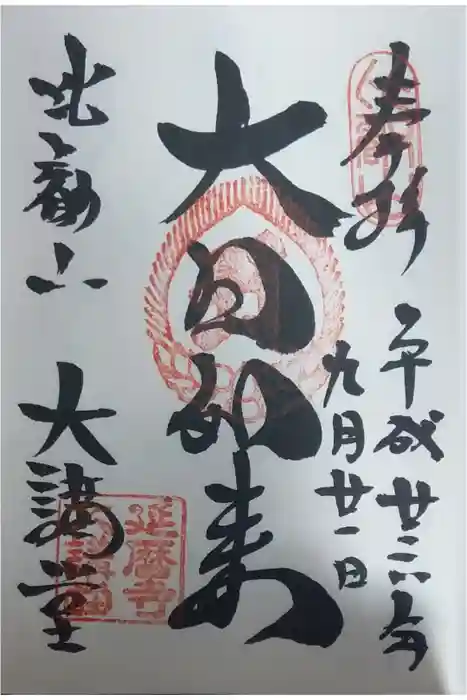 奉拝
平成廿年
九月廿一日
大日如来
比叡山 大講堂
延暦寺